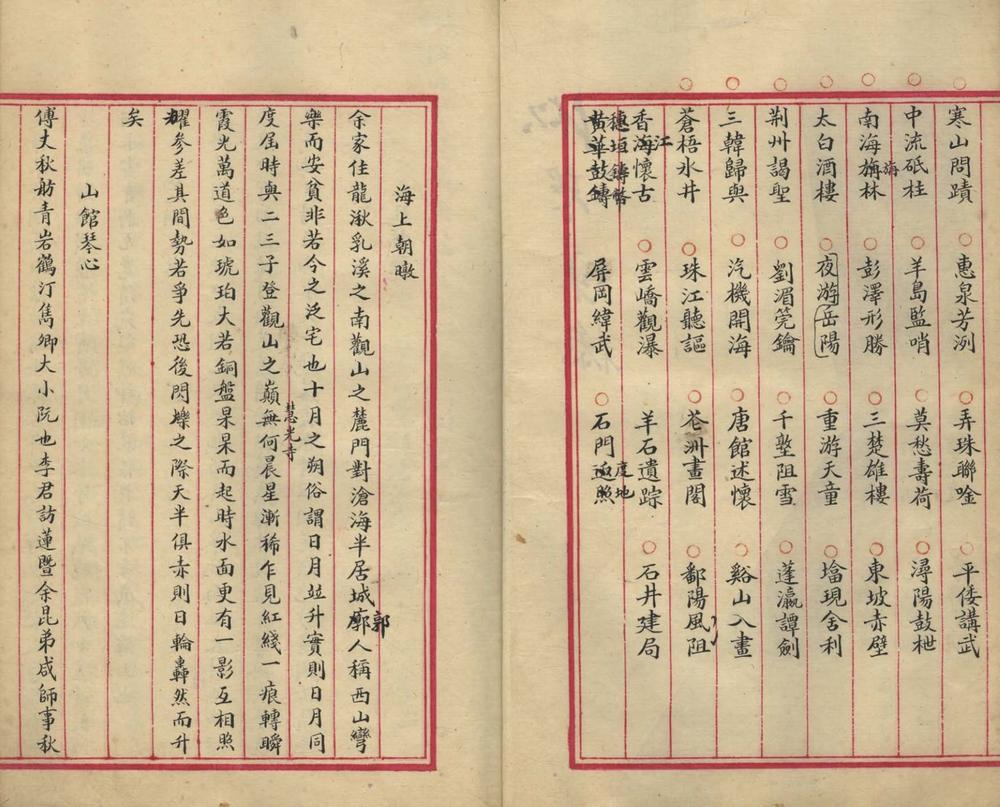 寒山問蹟 ○惠泉芳洌 ○弄珠聯唫 ○平倭講武
○中流砥柱 ○羊島監哨 ○莫愁壽荷 ○潯陽鼓枻
○南海旃林 ○彭澤形勝 ○三楚雄樓 ○東坡赤壁
海
○太白酒樓 ○夜游岳陽 ○重游天童 ○墖現舍利
○荆州謁聖 ○劉湄筦鑰 ○千壑阻雪 ○蓬瀛譚劍
○三韓歸與 ○汽機開海 ○唐館述懷 ○谿山入畫
○蒼梧水井 ○珠江聽謳 ○苍洲畫閣 ○鄱陽風阻
香海懷古 ○雲嶠觀瀑 羊石遺踪 ○石井建局
江
穗垣鑄幣
黃華鼓鑄 屏岡緯武 ○石門返照
度地
海上朝暾
余家住龍湫乳溪之南觀山之麓門對滄海半居城廓人稱西山彎
郭
樂而安貧非若今之泛宅也十月之朔俗謂日月竝升實則日月同
度屆時與二三子登觀山之巔無何晨星漸稀乍見紅綫一痕轉瞬
慧光寺
霞光萬道色如琥珀大若銅盤杲杲而起時水面更有一影互相照
耀參差其間勢若爭先恐後閃爍之際天半俱赤則日輪轟然而升
矣
山館琴心
傅丈秋舫青岩鶴汀雋卿大小阮也李君訪蓮暨余昆弟咸師事秋